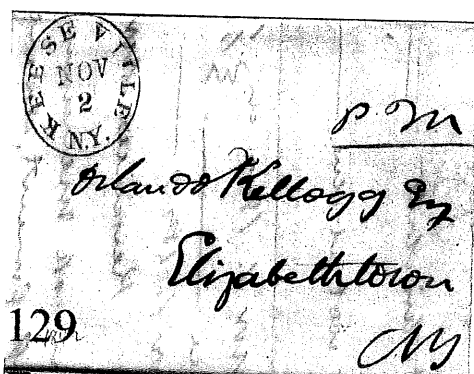 KEESEVILLE N.Y.
NOV
2
P M
Orlando Kellogg Esq
Elizabethtown
NY
129